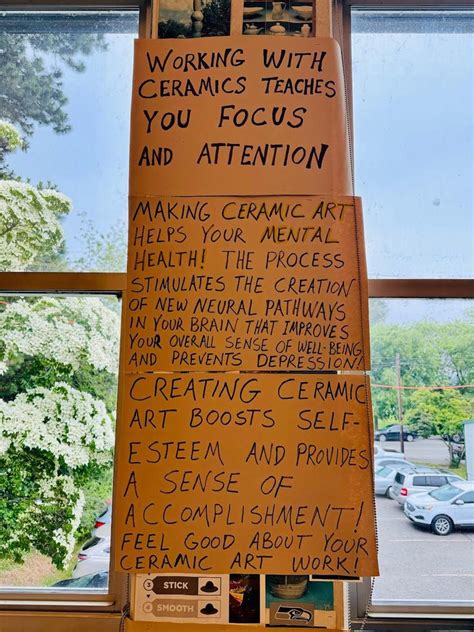 WORKING WITH
CERAMICS TEACHES
YOU FOCUS
AND ATTENTION
MAKING CERAMIC ART
HELPS YOUR MENTAL
HEALTH! THE PROCESS
STIMULATES THE CREATION
OF NEW NEURAL PATHWAYS
IN YOUR BRAIN THAT IMPROVES
YOUR OVERALL SENSE OF WELL-BEING
AND PREVENTS DEPRESSION!
CREATING CERAMIC
ART BOOSTS SELF-
ESTEEM AND PROVIDES
A SENSE OF
ACCOMPLISHMENT!
FEEL GOOD ABOUT YOUR
CERAMIC ART WORK!
3 STICK
SMOOTH